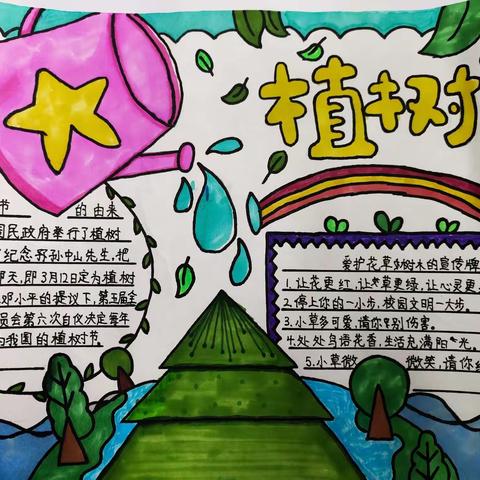 植树
节 的由来
国民政府举行了植树
纪念孙中山先生，把
那天，即3月12日定为植树
邓小平的提议下，第五届全
员会第六次会议决定每年
为我国的植树节
爱护花草树木的宣传牌
1.让花更红，让草更绿，让心灵更
2.停上你的一小步，校园文明一大步。
3.小草多可爱，请你别伤害。
4.处处鸟语花香，生活充满阳光。
5.小草微 微笑，请你